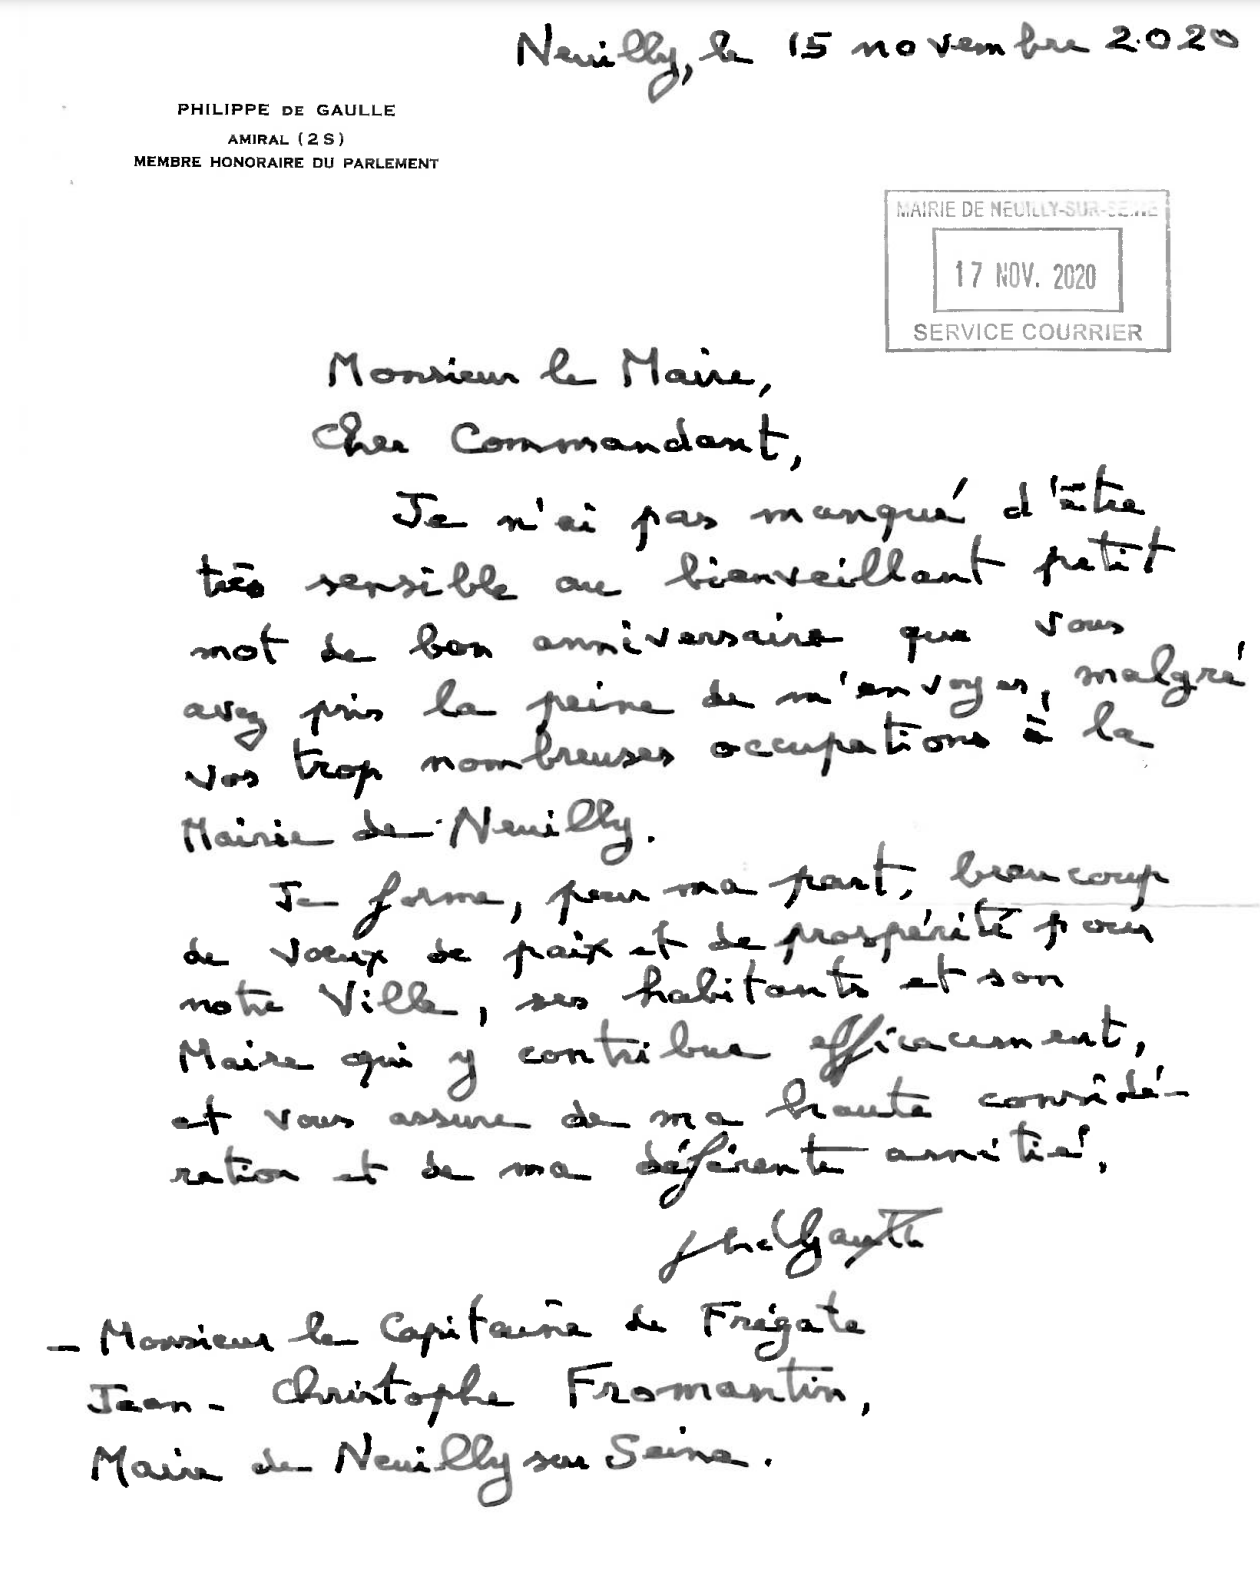 Neuilly, le 15 novembre 2020
PHILIPPE DE GAULLE
AMIRAL (2 S)
MEMBRE HONORAIRE DU PARLEMENT
MAIRIE DE NEUILLY-SUR-SEINE
17 NOV. 2020
SERVICE COURRIER
Monsieur le Maire,
Cher Commandant,
Je n'ai pas manqué d'être
très sensible au bienveillant petit
mot de bon anniversaire que vous
avez pris la peine de m'envoyer, malgré
vos trop nombreuses occupations à la
Mairie de Neuilly.
Je forme, pour ma part, beaucoup
de vœux de paix et de prospérité pour
notre Ville, ses habitants et son
Maire qui y contribue efficacement,
et vous assure de ma haute considé-
ration et de ma déférente amitié.
Ph de Gaulle
- Monsieur le Capitaine de Frégate
Jean-Christophe Fromantin,
Maire de Neuilly sur Seine.